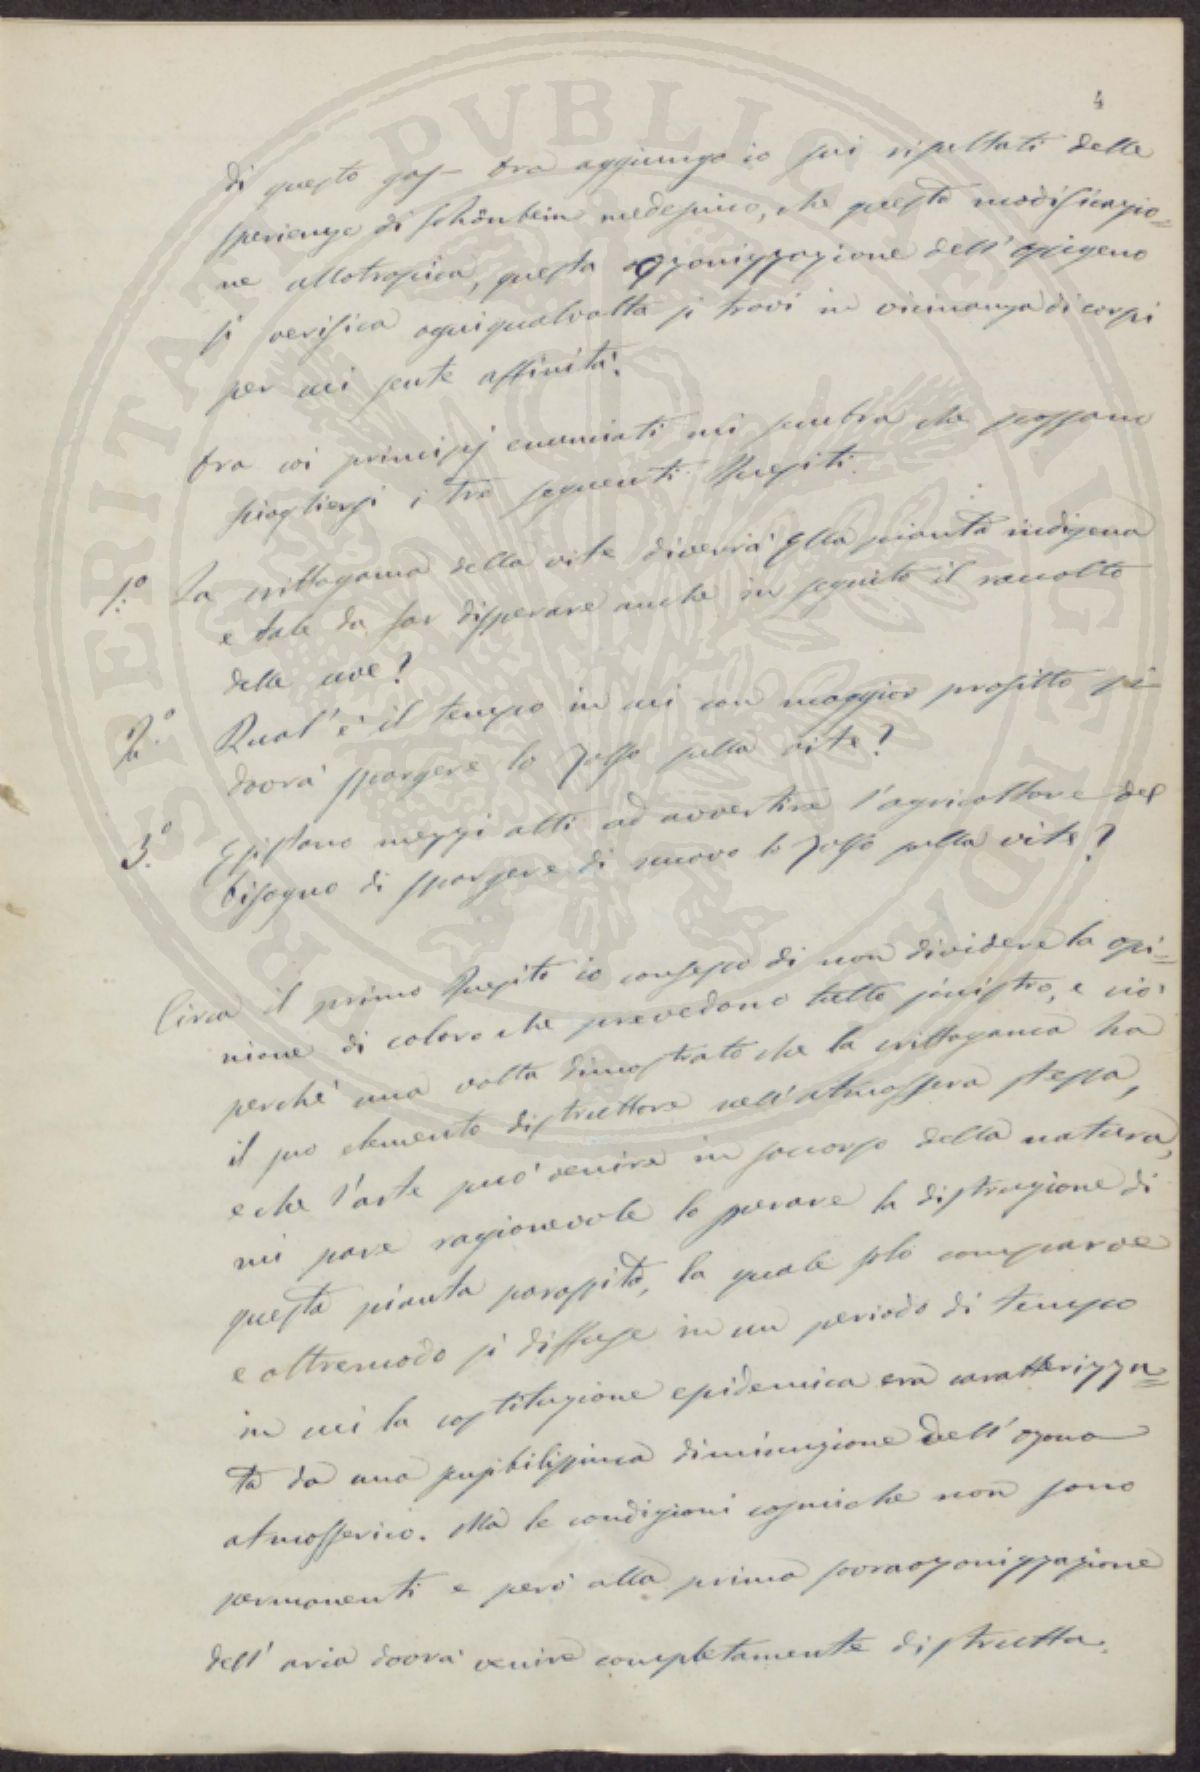 4
di questo gas – Ora aggiungo io sui risultati delle
sperienze di Schönbein medesimo, che questa modificazio=
ne allotropica, questa ozonizzazione dell'ossigeno
si verifica ogniqualvolta si trovi in vicinanza di corpi
per cui sente affinità.
Ora coi principj enunciati mi sembra che possano
sciogliersi i tre seguenti Quesiti.
1.º La crittogama della vite diverrà Ella pianta indigena
e tale da far disperare anche in seguito il raccolto
delle uve?
2.º Qual'è il tempo in cui con maggior profitto si
dovrà spargere lo Zolfo sulla vite?
3.º Esistono mezzi atti ad avvertire l'agricoltore del
bisogno di spargere di nuovo lo Zolfo sulla vite?
Circa il primo Quesito io confesso di non dividere la opi=
nione di coloro che prevedono tutto sinistro, e ciò
perchè una volta dimostrato che la crittogama ha
il suo elemento distruttore nell'atmosfera stessa,
e che l'arte può venire in soccorso della natura,
mi pare ragionevole lo sperare la distruzione di
questa pianta parassita, la quale solo comparve
e oltremodo si diffuse in un periodo di tempo
in cui la costituzione epidemica era caratterizza=
ta da una sensibilissima diminuzione dell'ozono
atmosferico. Ma le condizioni cosmiche non sono
permanenti e però alla prima sovraozonizzazione
dell'aria dovrà venire completamente distrutta.
PROSPERITATI PVBLICAE